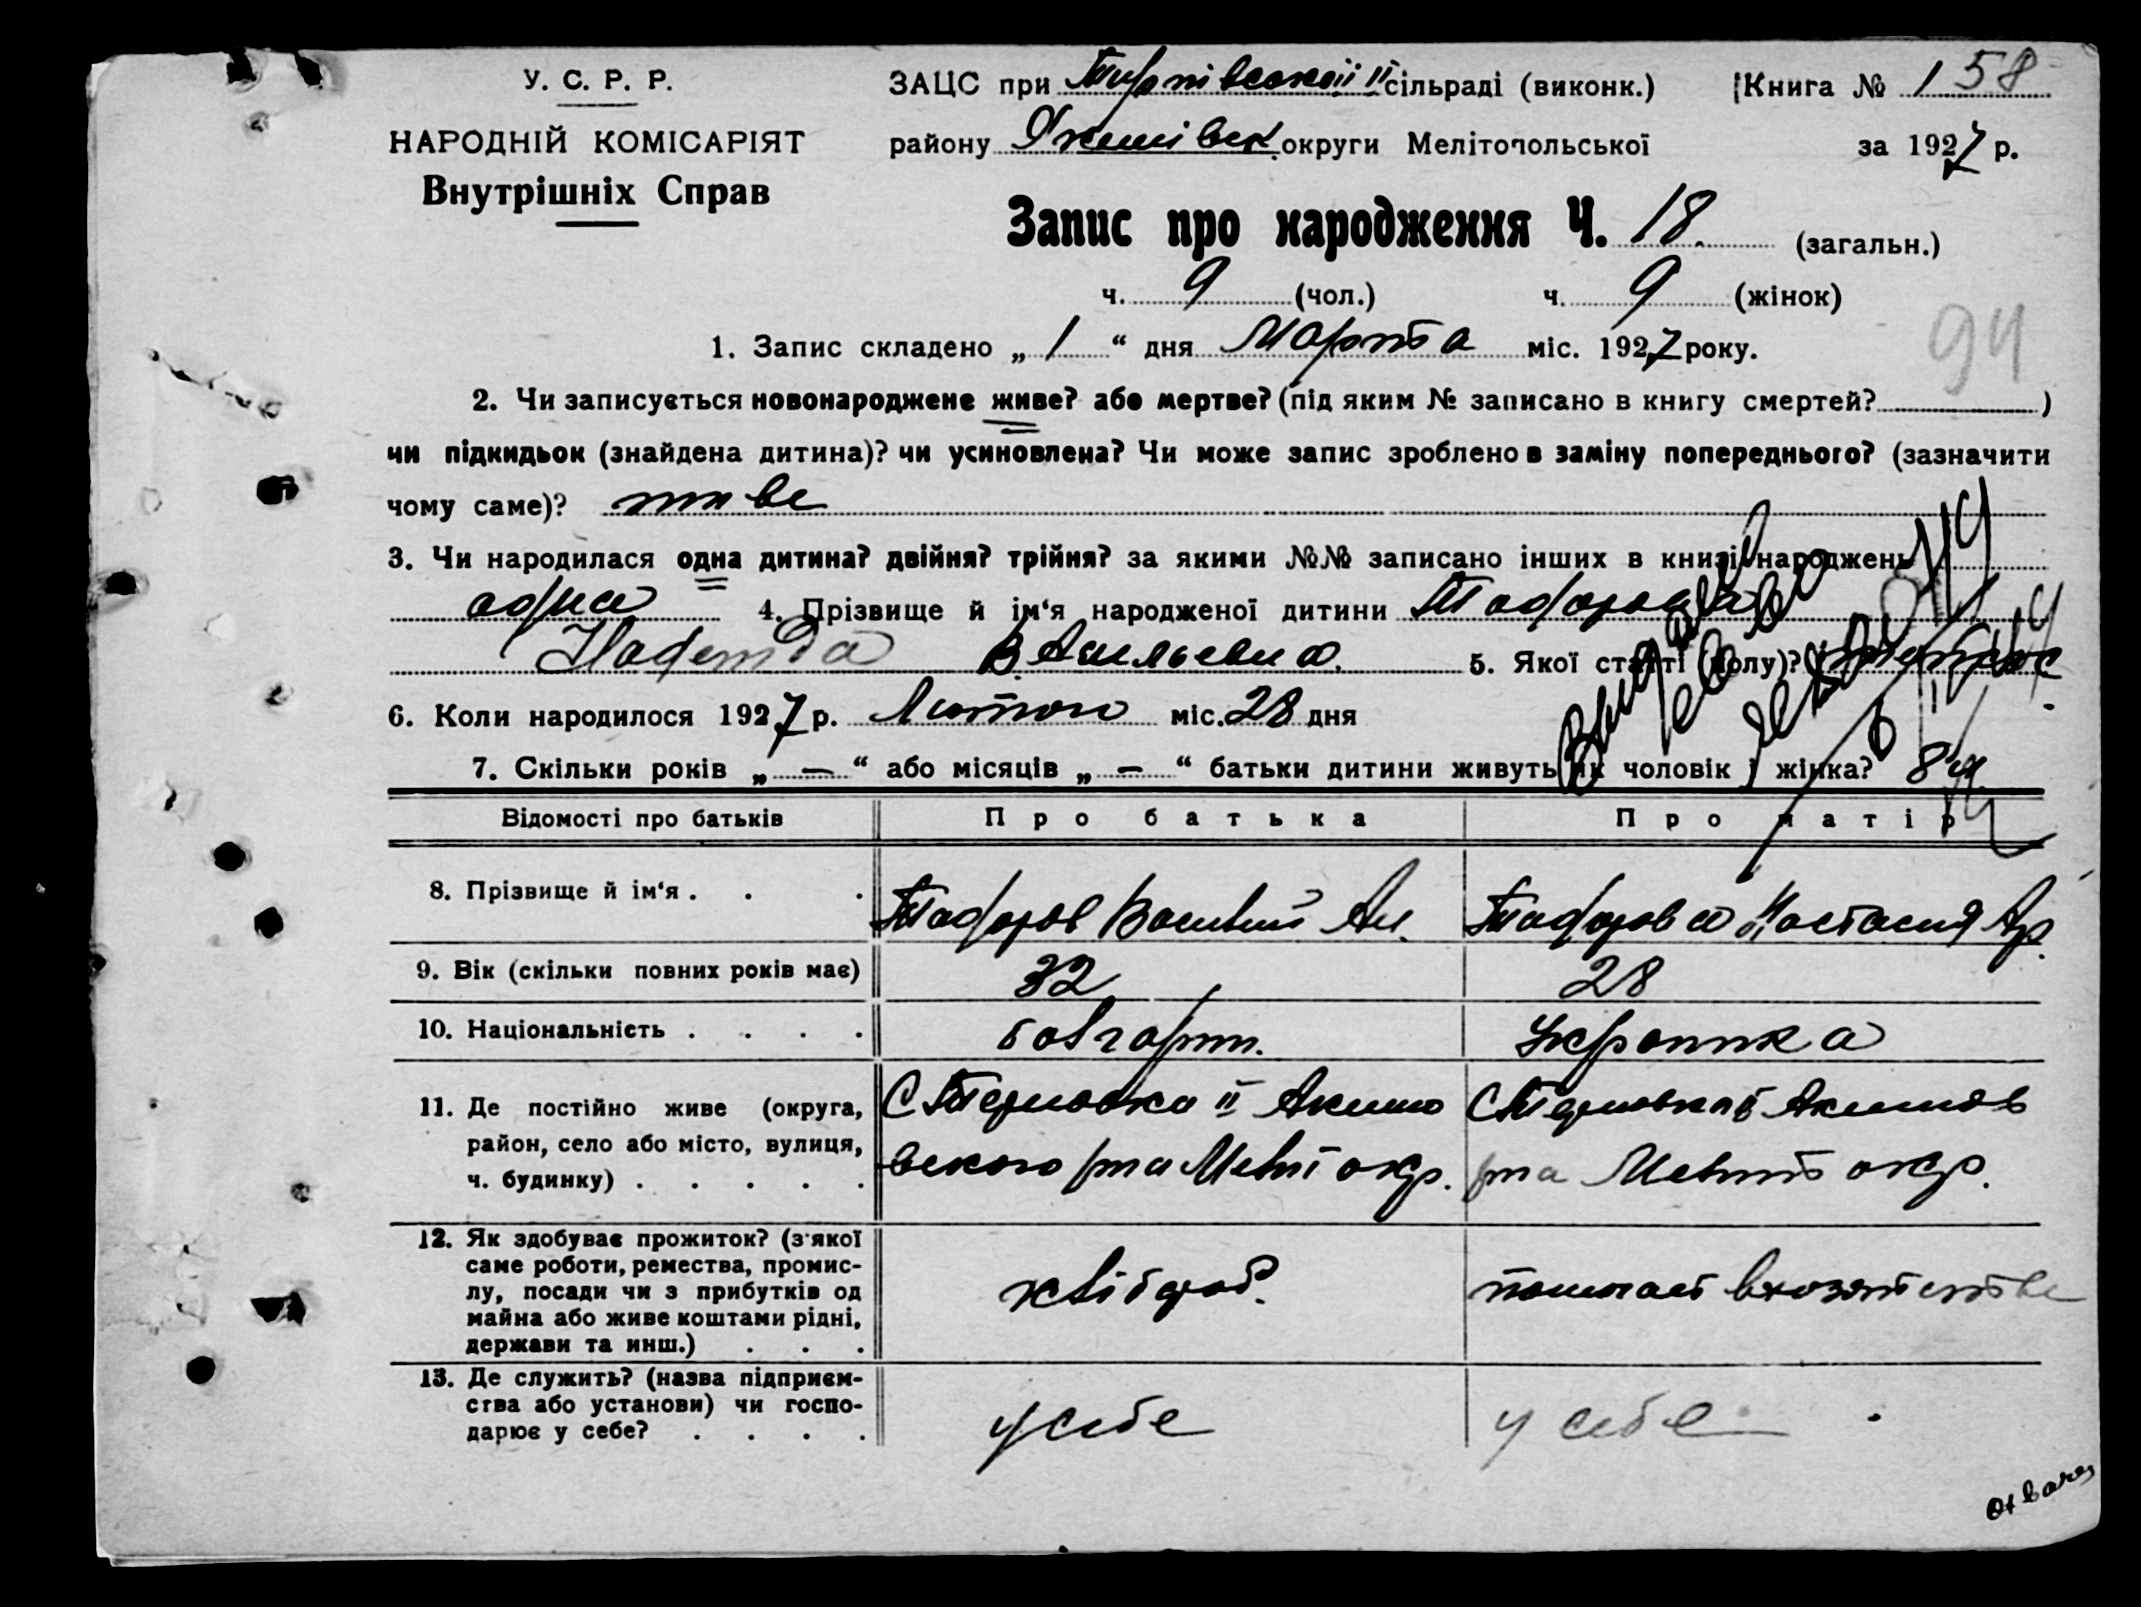 У. С. Р. Р.
НАРОДНІЙ КОМІСАРІЯТ
Внутрішніх Справ
ЗАЦС при Тернівської II сільраді (виконк.)
Книга № 158
району Якимівск. округи Мелітопольської
за 1927 р.
Запис про народження Ч. 18. (загальн.)
ч. 9 (чол.) ч. 9 (жінок)
1. Запис складено „ 1 “ дня Марта міс. 1927 року.
94
2. Чи записується новонароджене живе? або мертве? (під яким № записано в книгу смертей? )
чи підкидьок (знайдена дитина)? чи усиновлена? Чи може запис зроблено в заміну попереднього? (зазначити
чому саме)? живе
3. Чи народилася одна дитина? двійня? трійня? за якими №№ записано інших в книзі народжень
одна 4. Прізвище й ім‘я народженої дитини Тодорова
Надежда Васильевна. 5. Якої статті (полу)?
6. Коли народилося 1927 р. Лютого міс. 28 дня
7. Скільки років „ — “ або місяців „ — “ батьки дитини живуть як чоловік і жінка? 8
Відомості про батьків Про батька Про матір
8. Прізвище й ім‘я . . . Тодоров Василий Ан. Тодорова Настасия Ар.
9. Вік (скільки повних років має) 32 28
10. Національність . . . . болгарин. Украинка
11. Де постійно живе (округа, район, село або місто, вулиця, ч. будинку) . . . . .
С Терновка II Акимо
вского р-на Меліт окр.
С Терновка II Акимов
р-на Меліт окр.
12. Як здобуває прожиток? (з‘якої
саме роботи, ремества, промис-
лу, посади чи з прибутків од
майна або живе коштами рідні,
держави та инш.) . . .
хлібороб.
помогает в хозяйстве
13. Де служить? (назва підприєм-
ства або установи) чи госпо-
дарює у себе? . . . .
у себе
у себе